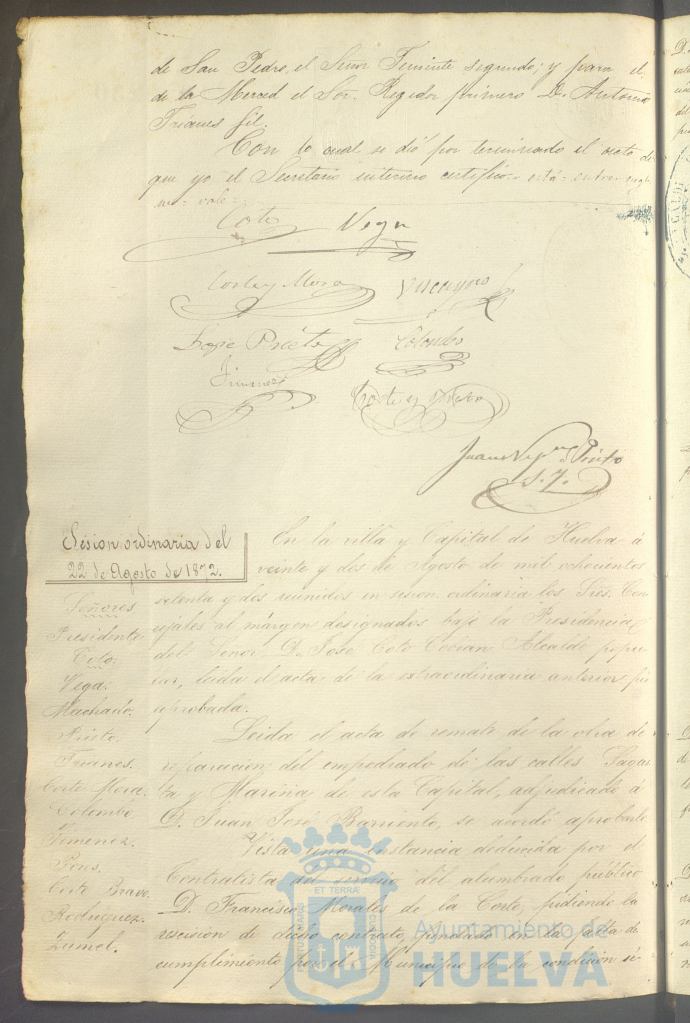 de San Pedro, el Señor Teniente segundo; y para el
de la Merced el Sor. Regidor primero D. Antonio
Trianes Gil.
Con lo cual se dió por terminado el acto de
que yo el Secretario interino certifico.= está= entre
vale=
Coto Vega
Corte y Mora
Lope Prieto Colombo
Jimenez
Juan Prieto
S. I.
Sesion ordinaria del
22 de Agosto de 1872.
Señores
Presidente
Coto.
Vega.
Machado.
Prieto.
Trianes.
Corte Mora.
Colombo.
Jimenez.
Corte Bravo.
Rodriguez.
Zumel.
En la villa y Capital de Huelva á
veinte y dos de Agosto de mil ochocientos
setenta y dos reunidos en sesion ordinaria los Sres. Con
cejales al márgen designados bajo la Presidencia
del Señor D. José Coto Cobian Alcalde popu
lar, leida el acta de la estraordinaria anterior fué
aprobada.
Leida el acta de remate de la obra de
reparacion del empedrado de las calles Sagas
ta y Marina de esta Capital, adjudicado á
D. Juan José Barriento, se acordó aprobarlo
Vista una instancia deducida por el
Contratista del servicio del alumbrado público
D. Francisco Morales de la Corte, pidiendo la
rescision de dicho contrato, fundado en la falta de
cumplimiento por el Municipio de la condicion
ET TERRÆ
Ayuntamiento de
HUELVA